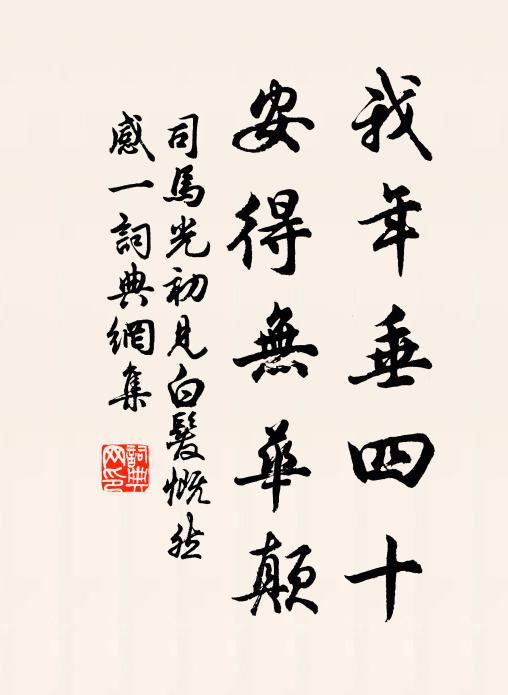 我年垂四十
安得無華顛
司馬光初見白髮慨然
感一詞典網集
詞典
网印